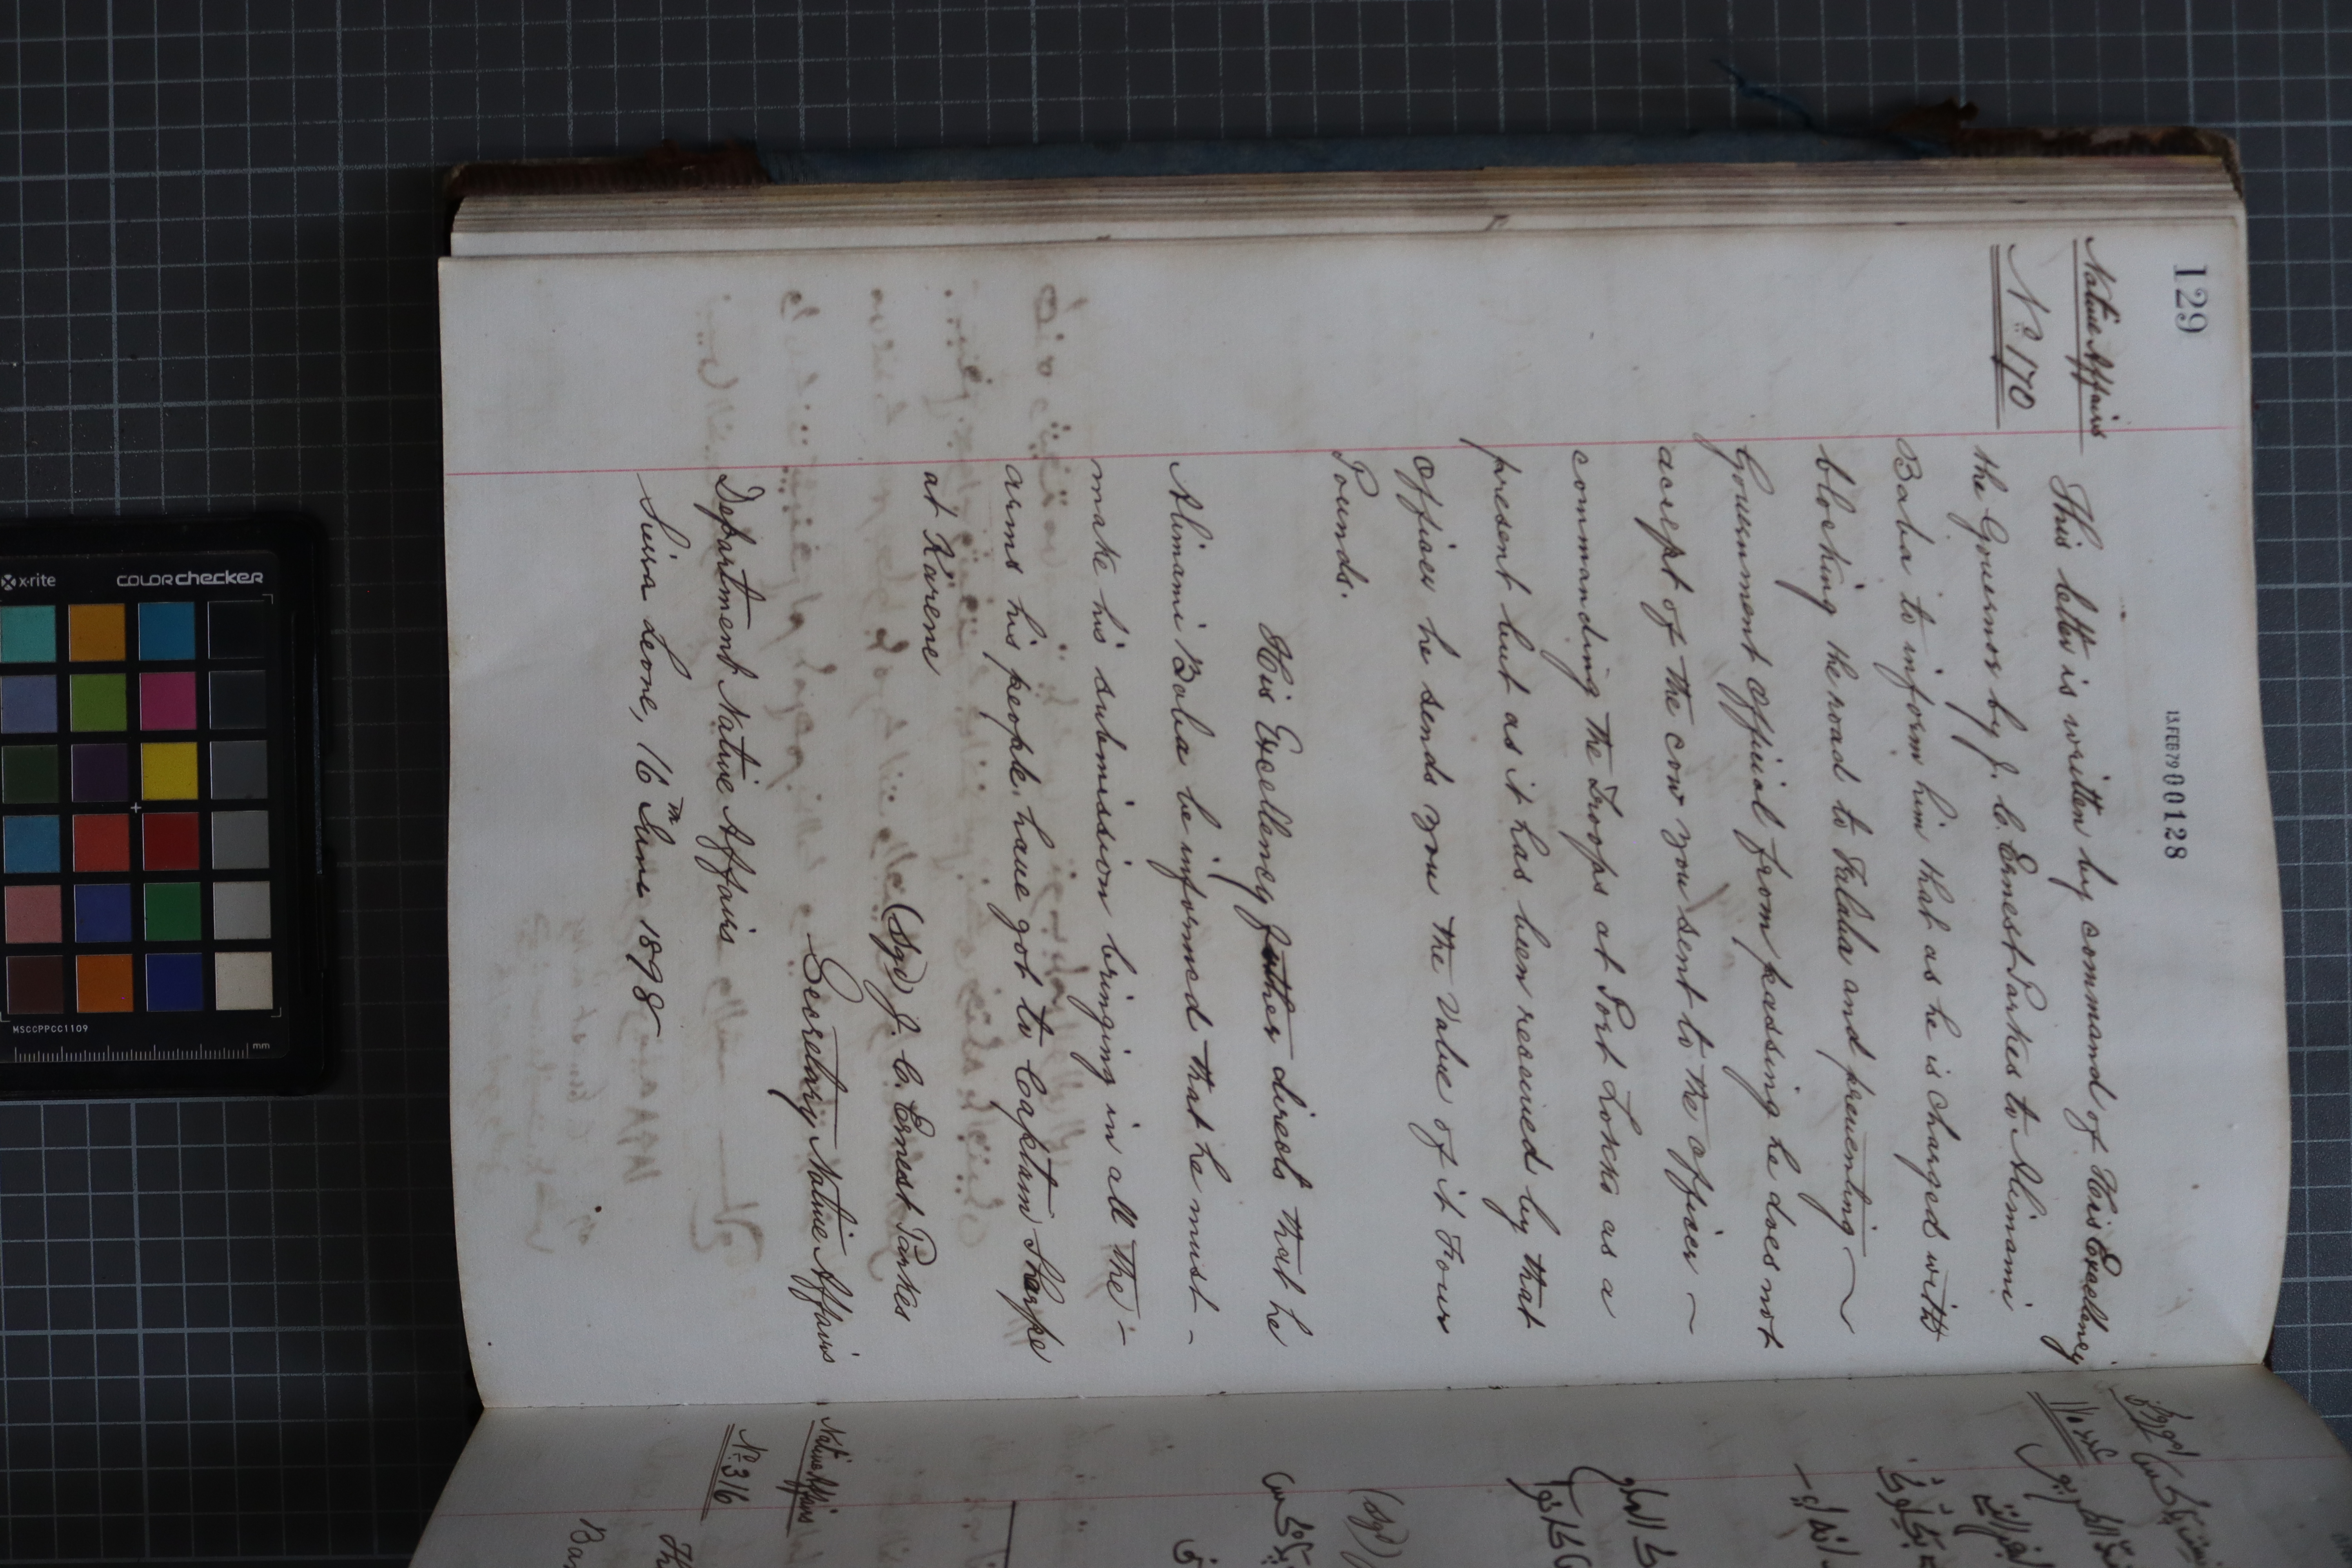 129
13 FEB 79 00128
Native Affairs
No 170
This letter is written by command of His Excellency
the Governor by J. C. Ernest Parkes to Alimami
Boba to inform him that as he is charged with
blocking the road to Falaba and preventing
Government Official from passing he does not
accept of the cow you sent to the officer
commanding the Troops at Port Lokko as a
present but as it has been received by that
Officer he sends you the value of it Four
Pounds.
His Excellency further directs that he
Alimami Boba be informed that he must
make his submission bringing in all the
arms his people have got to Captain Sharpe
at Karene
(Sgd) J. C. Ernest Parkes
Secretary Native Affairs
Department Native Affairs
Sierra Leone, 16th June 1898
(Sgd)
Native Affairs
No 316
x-rite
colorchecker
MSCCPPCC1109
mm